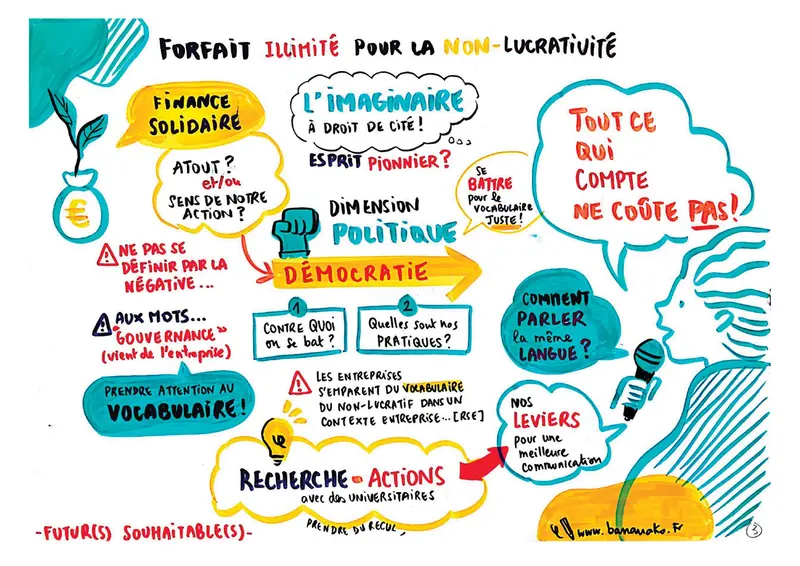 FORFAIT ILLIMITÉ POUR LA NON-LUCRATIVITÉ
FINANCE
SOLIDAIRE
ATOUT ?
et/ou
SENS DE NOTRE
ACTION ?
L'IMAGINAIRE
À DROIT DE CITÉ !
ESPRIT PIONNIER ?
SE
BATTRE
pour le
VOCABULAIRE
JUSTE !
TOUT CE
QUI
COMPTE
NE COÛTE PAS !
€
DIMENSION
POLITIQUE
DÉMOCRATIE
NE PAS SE
DÉFINIR PAR LA
NÉGATIVE...
AUX MOTS...
"GOUVERNANCE"
(vient de l'entreprise)
PRENDRE ATTENTION AU
VOCABULAIRE !
1
CONTRE QUOI
on se bat ?
2
Quelles sont nos
PRATIQUES ?
COMMENT
PARLER
la même
LANGUE ?
LES ENTREPRISES
S'EMPARENT DU VOCABULAIRE
DU NON-LUCRATIF DANS UN
CONTEXTE ENTREPRISE... [RSE]
NOS
LEVIERS
pour une
meilleure
communication
RECHERCHE - ACTIONS
avec des UNIVERSITAIRES
PRENDRE DU RECUL,
-FUTUR(S) SOUHAITABLE(S)-
www.bananako.fr
3